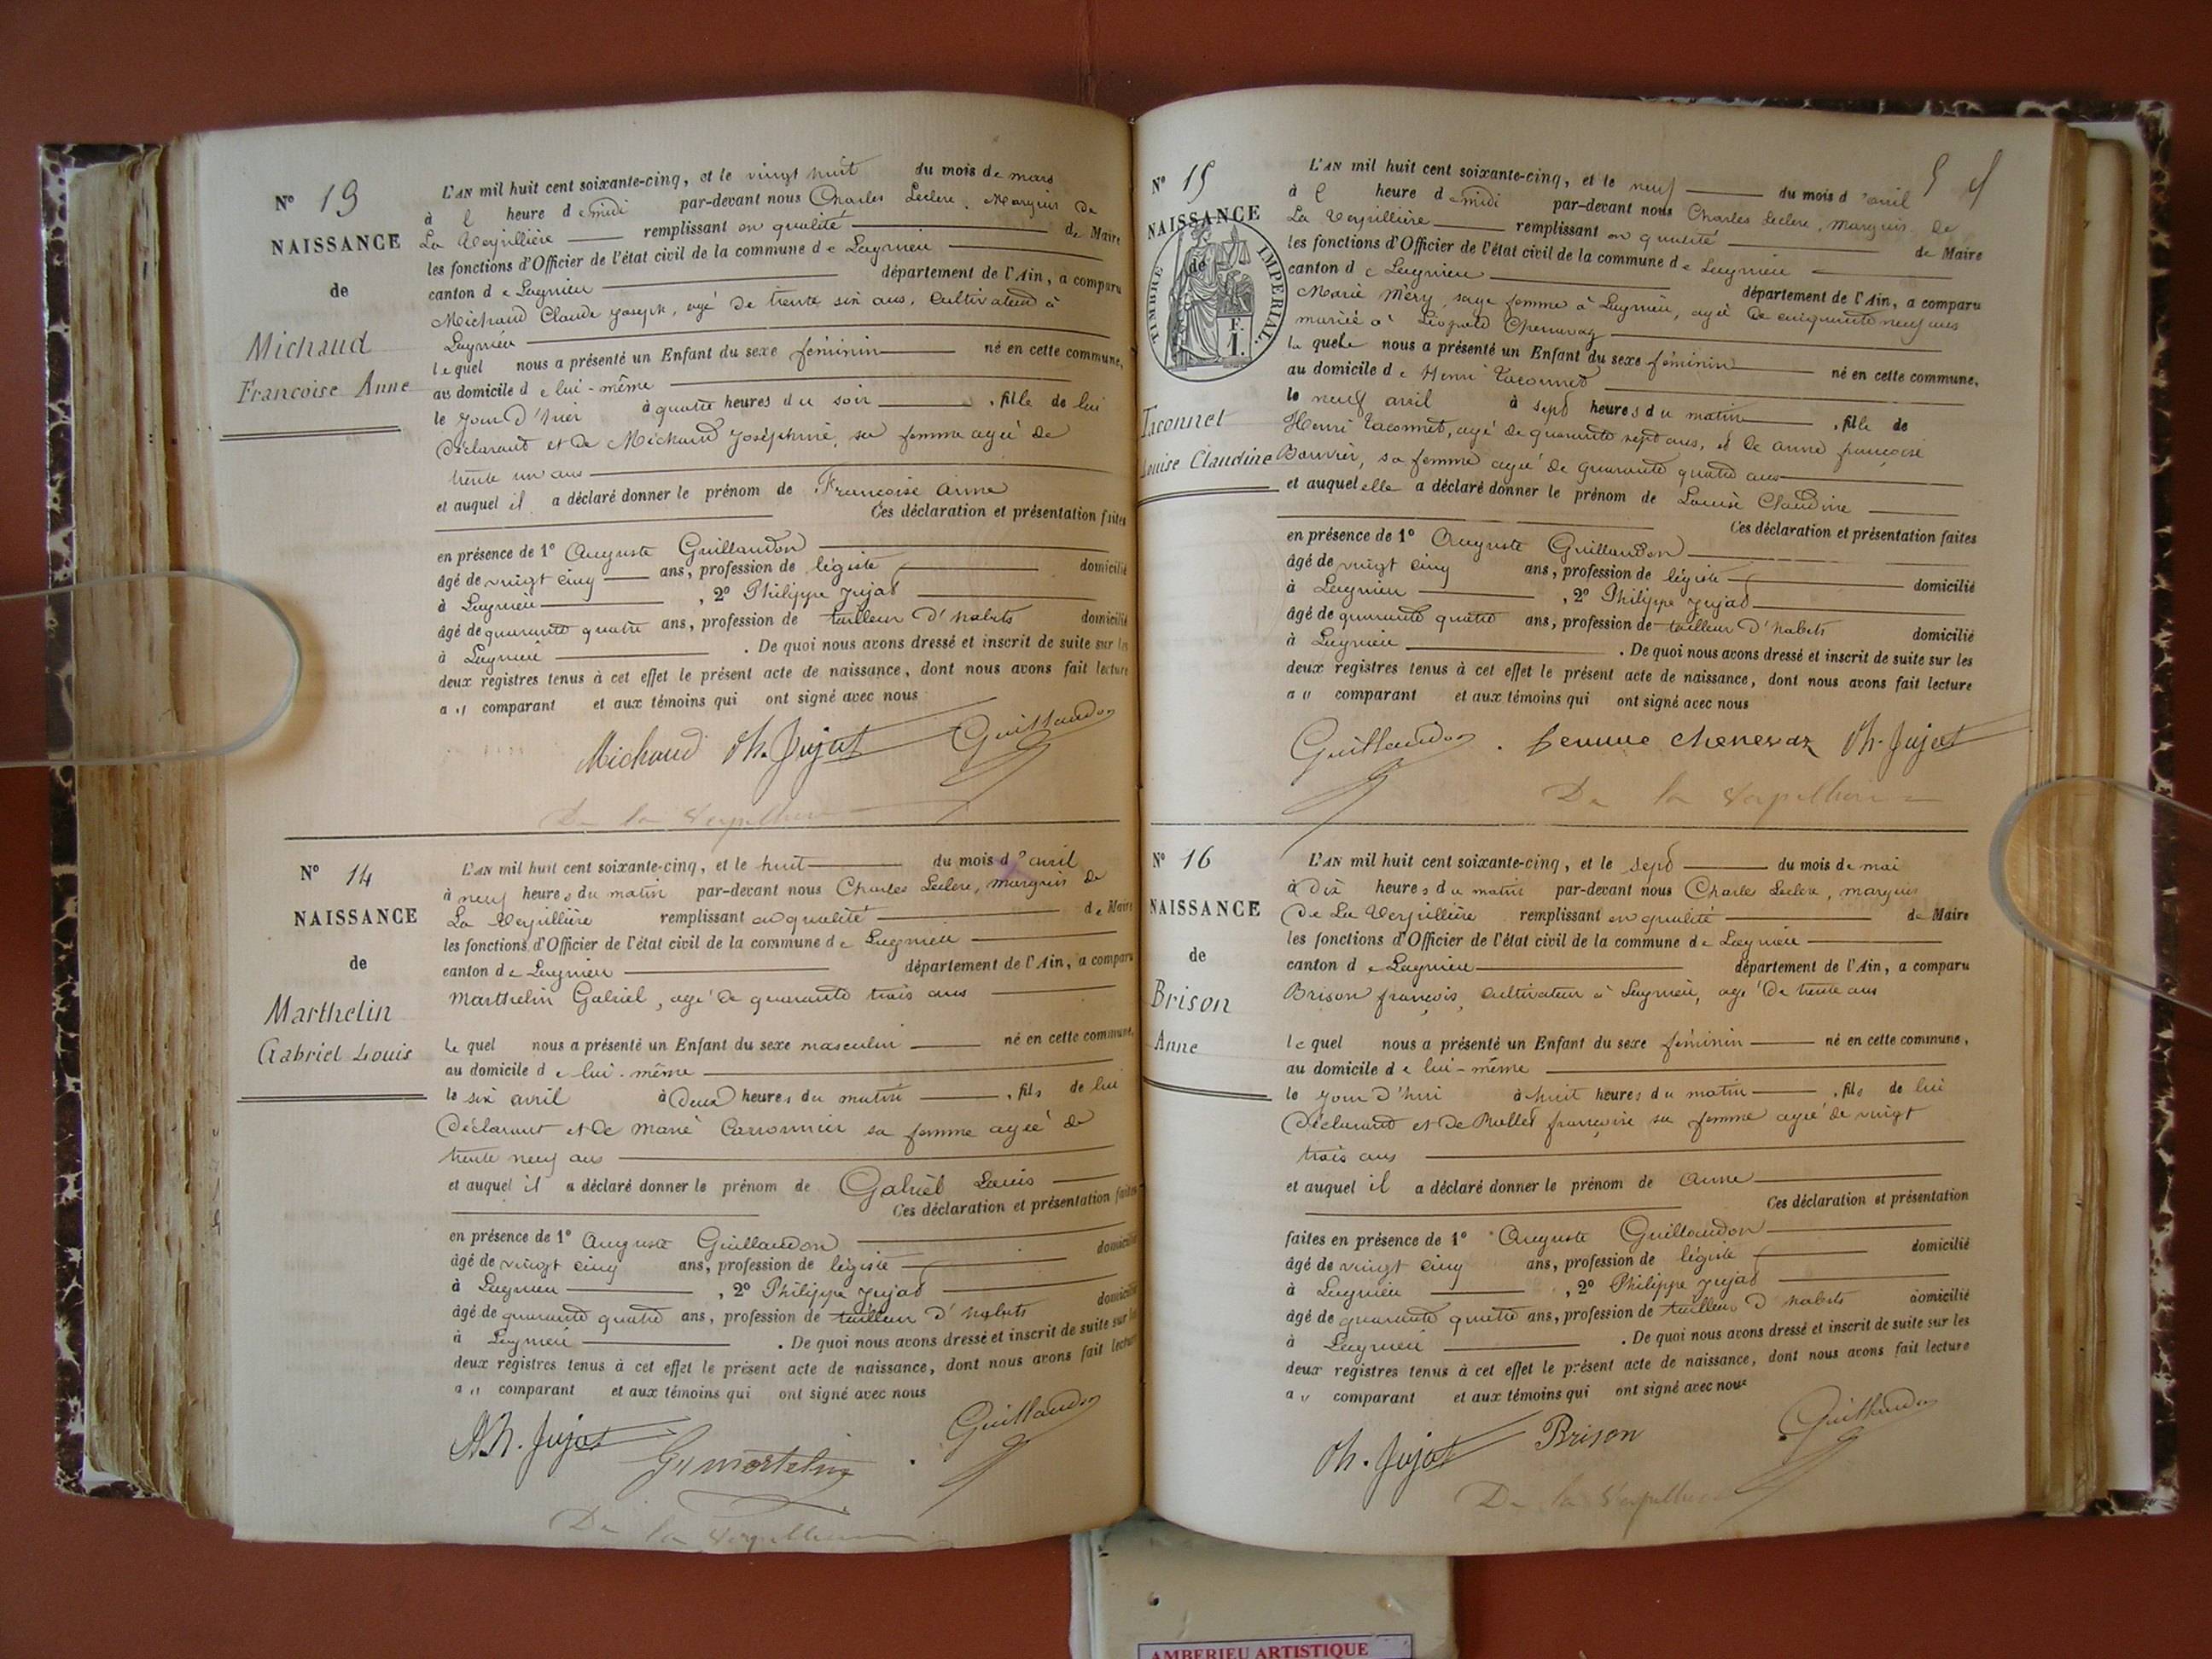 N° 13
NAISSANCE
de
Michaud
Françoise Anne
L'AN mil huit cent soixante-cinq, et le vingt huit du mois de mars
à heure de midi par-devant nous Charles Leclerc, Marquis de
La Verpillière remplissant en qualité de Maire
les fonctions d'Officier de l'état civil de la commune de Lagnieu
canton de Lagnieu département de l'Ain, a comparu
Michaud Claude Joseph, agé de trente six ans, Cultivateur à
Lagnieu
lequel nous a présenté un Enfant du sexe féminin né en cette commune,
au domicile de lui-même
le jour d'hier à quatre heures du soir, fille de lui
Déclarant et de Michaud Joséphine, sa femme agée de
trente un ans
et auquel il a déclaré donner le prénom de Françoise Anne
Ces déclaration et présentation faites
en présence de 1° Auguste Guillaudon
âgé de vingt cinq ans, profession de légiste domicilié
à Lagnieu, 2° Philippe Jujat
âgé de quarante quatre ans, profession de tailleur d'habits domicilié
à Lagnieu. De quoi nous avons dressé et inscrit de suite sur les
deux registres tenus à cet effet le présent acte de naissance, dont nous avons fait lecture
au comparant et aux témoins qui ont signé avec nous
Michaud Ph. Jujat Guillaudon
De la Verpillière
N° 14
NAISSANCE
de
Marthelin
Gabriel Louis
L'AN mil huit cent soixante-cinq, et le huit du mois d'avril
à neuf heures du matin par-devant nous Charles Leclerc, marquis de
La Verpillière remplissant en qualité de Maire
les fonctions d'Officier de l'état civil de la commune de Lagnieu
canton de Lagnieu département de l'Ain, a comparu
Marthelin Gabriel, agé de quarante trois ans
le quel nous a présenté un Enfant du sexe masculin né en cette commune,
au domicile de lui-même
le six avril à deux heures du matin, fils de lui
Déclarant et de Marie sa femme agée de
trente neuf ans
et auquel il a déclaré donner le prénom de Gabriel Louis
Ces déclaration et présentation faites
en présence de 1° Auguste Guillaudon
âgé de vingt cinq ans, profession de légiste domicilié
à Lagnieu, 2° Philippe Jujat
âgé de quarante quatre ans, profession de tailleur d'habits domicilié
à Lagnieu. De quoi nous avons dressé et inscrit de suite sur les
deux registres tenus à cet effet le présent acte de naissance, dont nous avons fait lecture
au comparant et aux témoins qui ont signé avec nous
Ph. Jujat Guillaudon
De la Verpillière
N° 15
NAISSANCE
de
TIMBRE IMPÉRIAL.
F.
1.
Taconnet
Louise Claudine
L'AN mil huit cent soixante-cinq, et le neuf du mois d'avril
à heure de midi par-devant nous Charles Leclerc, marquis de
La Verpillière remplissant en qualité de Maire
les fonctions d'Officier de l'état civil de la commune de Lagnieu
canton de Lagnieu département de l'Ain, a comparu
Marie Méry, sage femme à Lagnieu, agée de cinquante neuf ans
mariée à Léopold
la quelle nous a présenté un Enfant du sexe féminin né en cette commune,
au domicile de Henri Taconnet
le neuf avril à sept heures du matin, fille de
Henri Taconnet, agé de quarante sept ans, et de Anne françoise
Bouvier, sa femme agée de quarante quatre ans
et auquel elle a déclaré donner le prénom de Louise Claudine
Ces déclaration et présentation faites
en présence de 1° Auguste Guillaudon
âgé de vingt cinq ans, profession de légiste domicilié
à Lagnieu, 2° Philippe Jujat
âgé de quarante quatre ans, profession de tailleur d'habits domicilié
à Lagnieu. De quoi nous avons dressé et inscrit de suite sur les
deux registres tenus à cet effet le présent acte de naissance, dont nous avons fait lecture
au comparant et aux témoins qui ont signé avec nous
Guillaudon. femme chenevaz Ph. Jujat
De la Verpillière
N° 16
NAISSANCE
de
Brison
Anne
L'AN mil huit cent soixante-cinq, et le sept du mois de mai
à dix heures du matin par-devant nous Charles Leclerc, marquis
De La Verpillière remplissant en qualité de Maire
les fonctions d'Officier de l'état civil de la commune de Lagnieu
canton de Lagnieu département de l'Ain, a comparu
Brison françois, Cultivateur à Lagnieu, agé de trente ans
le quel nous a présenté un Enfant du sexe féminin né en cette commune,
au domicile de lui-même
le jour d'hui à huit heures du matin, fils de lui
Déclarant et de françoise sa femme agée de vingt
trois ans
et auquel il a déclaré donner le prénom de Anne
Ces déclaration et présentation
faites en présence de 1° Auguste Guillaudon
âgé de vingt cinq ans, profession de légiste domicilié
à Lagnieu, 2° Philippe Jujat
âgé de quarante quatre ans, profession de tailleur d'habits domicilié
à Lagnieu. De quoi nous avons dressé et inscrit de suite sur les
deux registres tenus à cet effet le présent acte de naissance, dont nous avons fait lecture
au comparant et aux témoins qui ont signé avec nous
Ph. Jujat Brison Guillaudon
De la Verpillière
AMBERIEU ARTISTIQUE